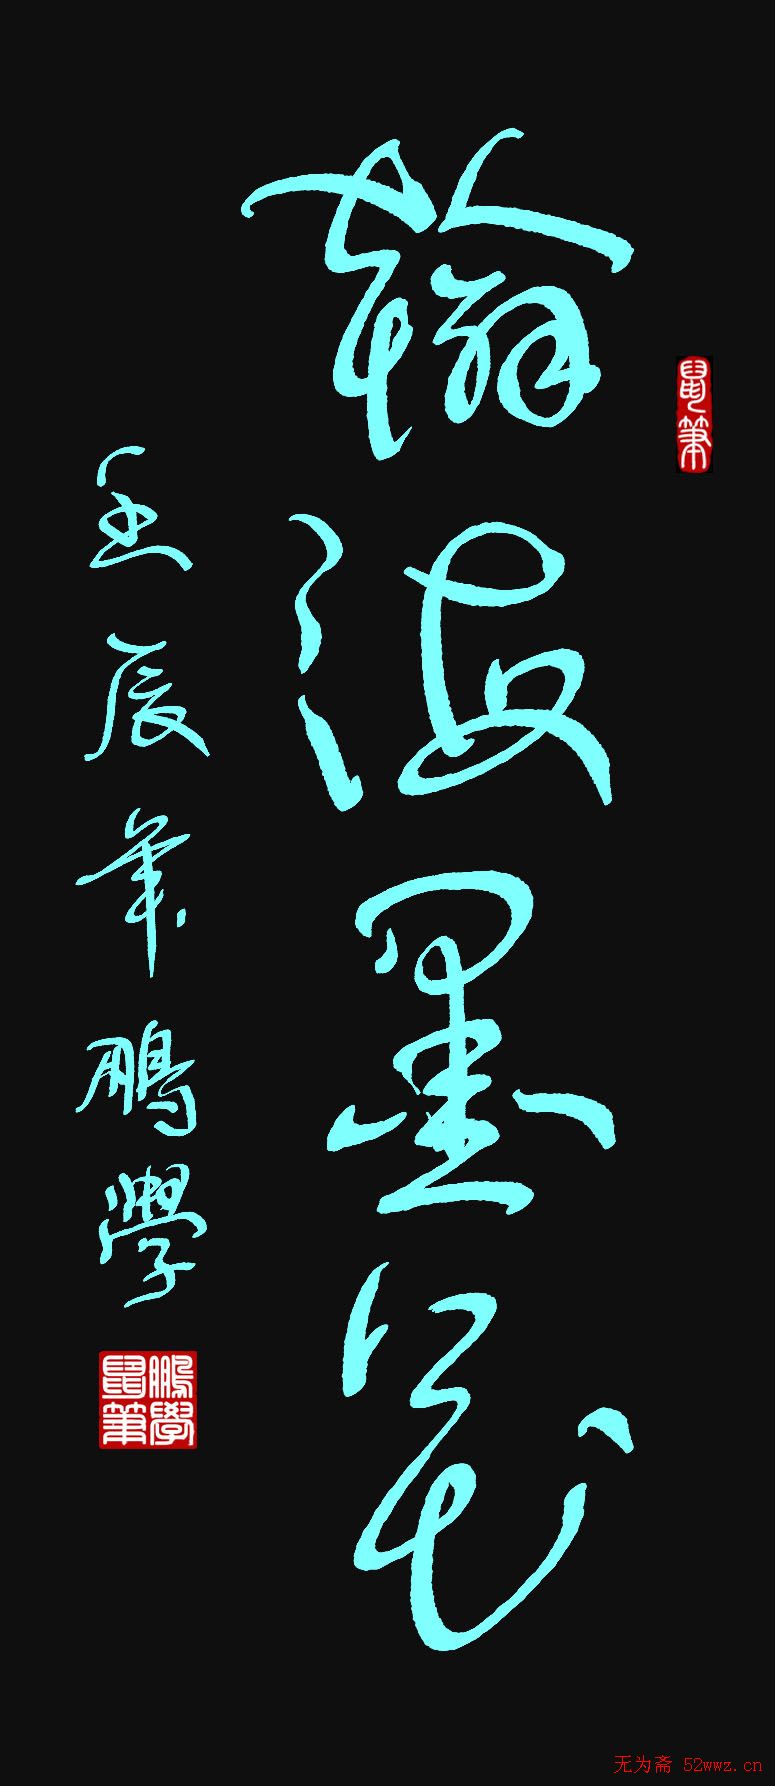 鼠筆
翰海墨
壬辰年鵬學
鵬學
鼠筆
无为斋 52wwz.cn